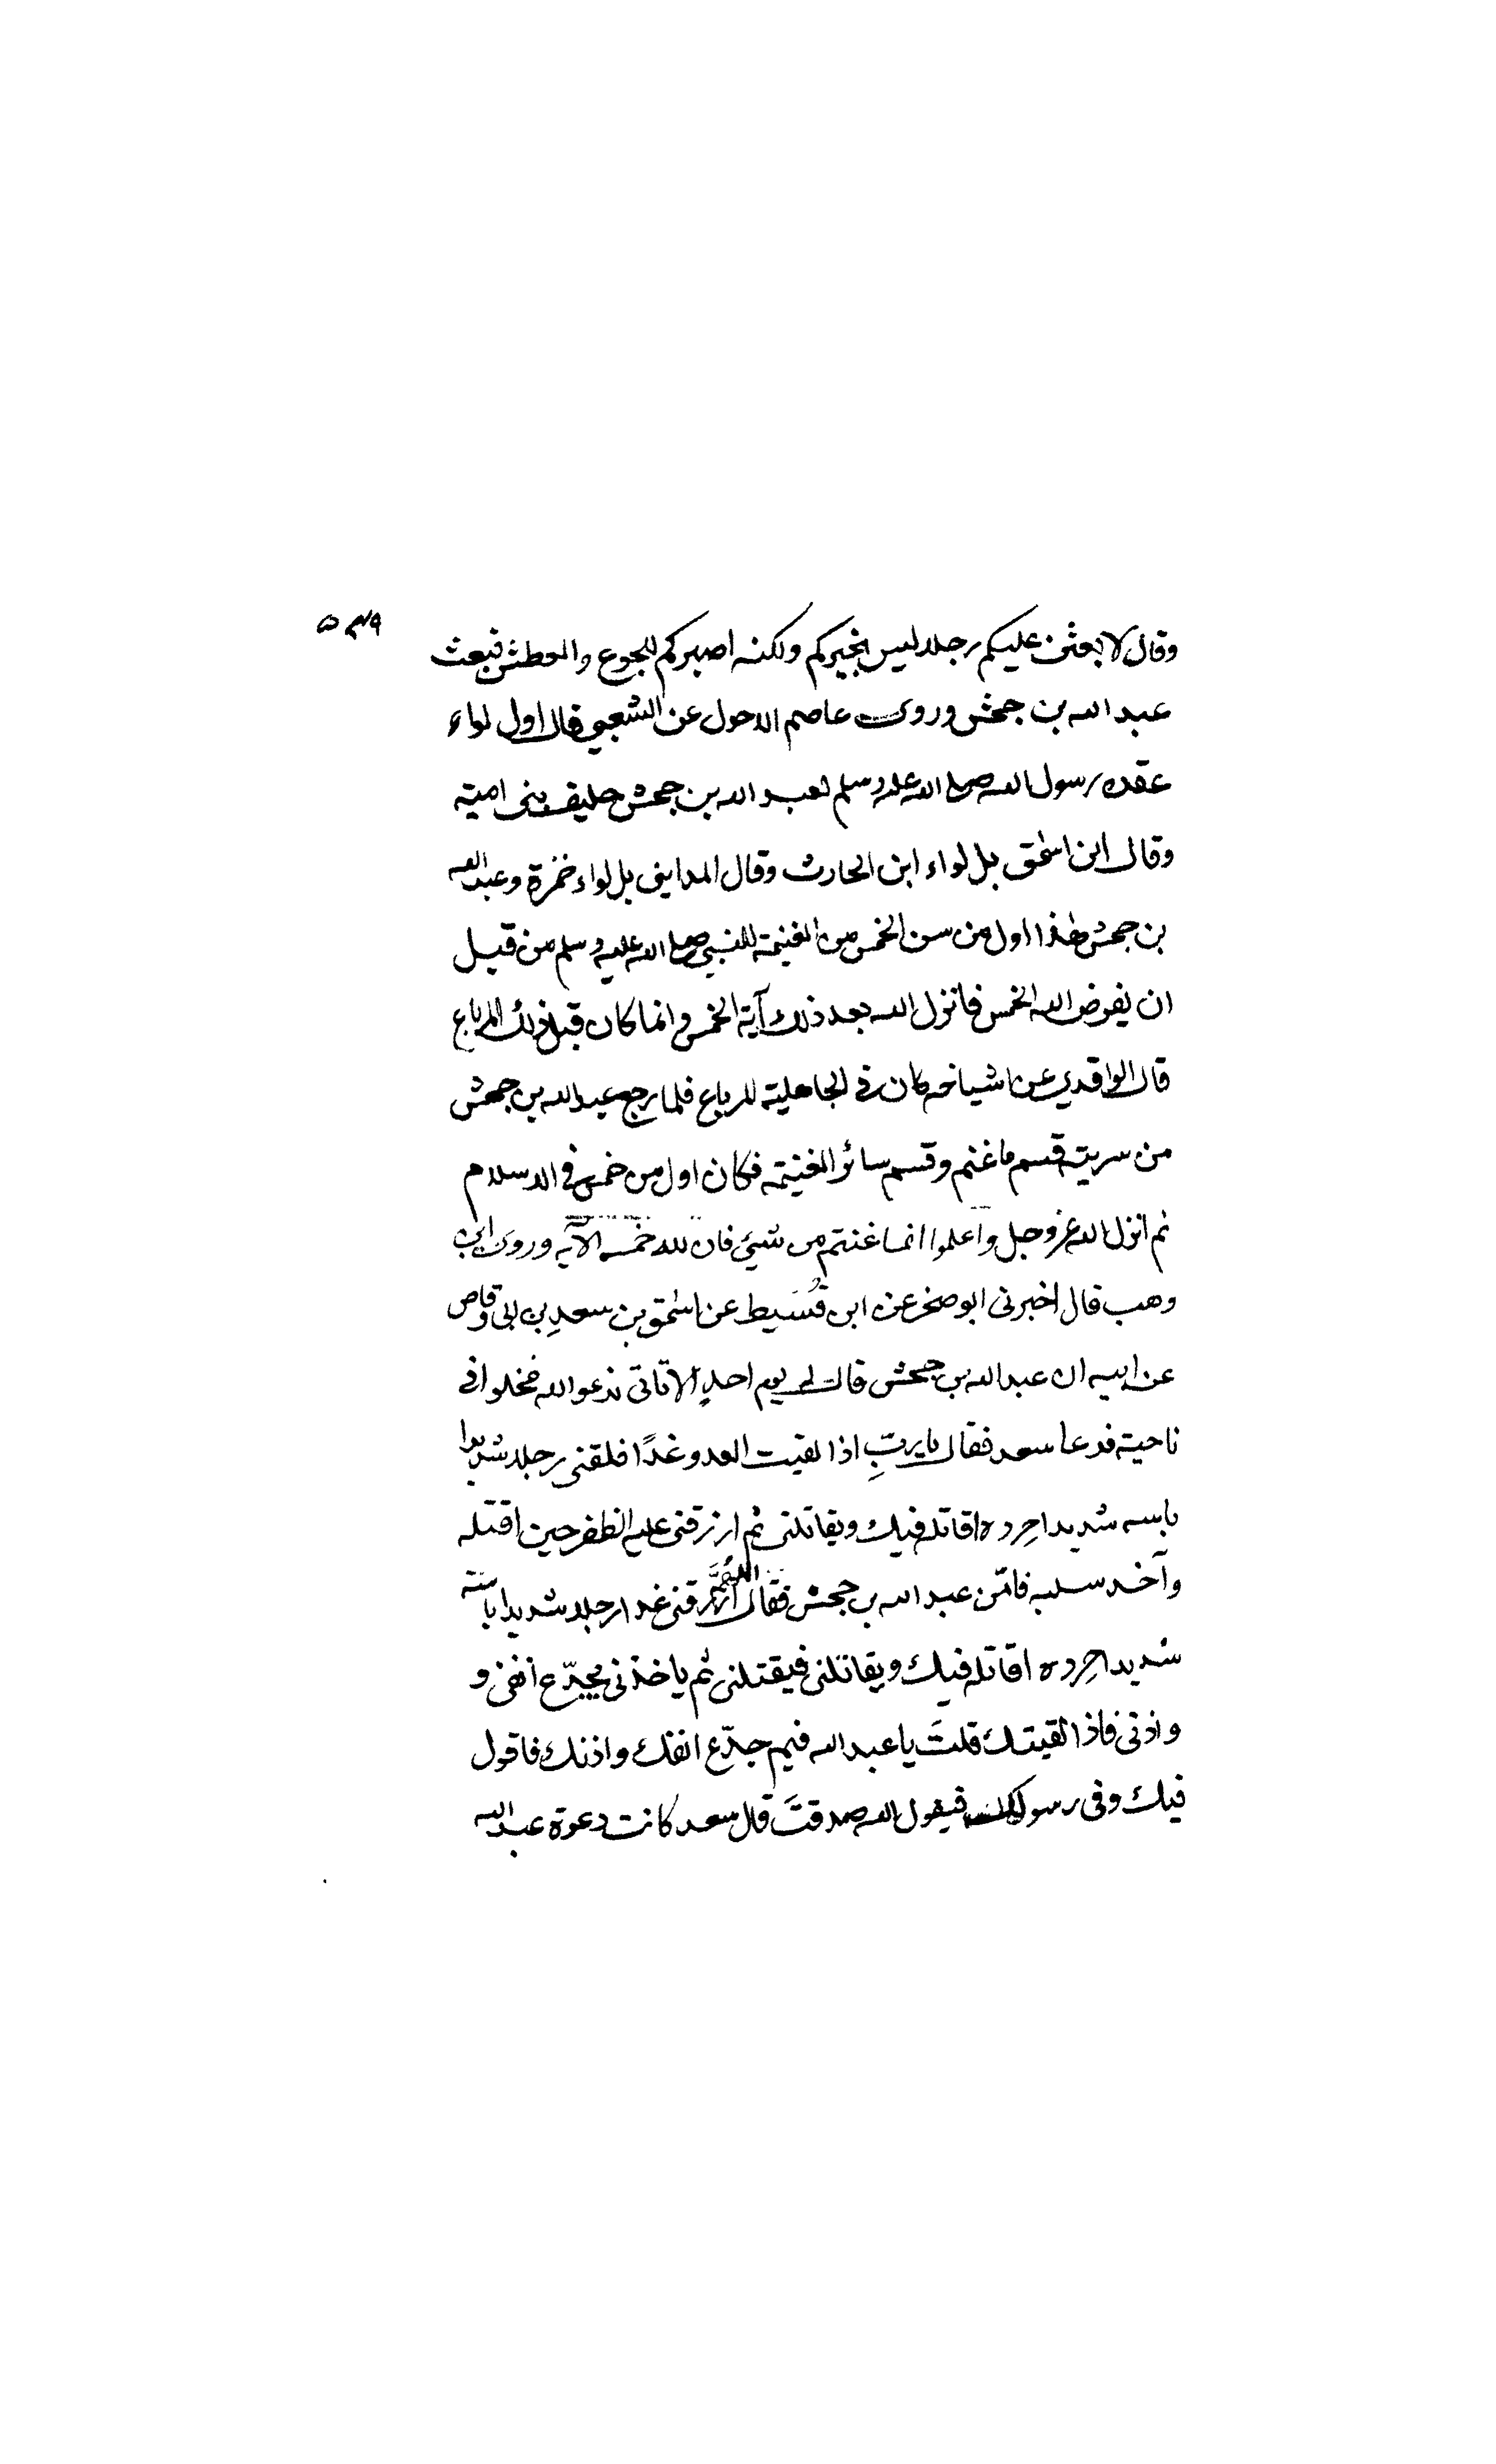 ٥٣٧٩
وقال لابعثن عليكم رجلا ليس بخيركم ولكنه اصبركم للجوع والعطش فبعث
عبد الله بن جحش وروى عاصم الاحول عن الشعبي قال اول لواء
عقده رسول الله صلى الله عليه وسلم لعبد الله بن جحش حليف بنى امية
وقال ابن اسحق بل لواء ابن الحارث وقال المدايني بل لواء حمزة وعبد الله
بن جحش هذا اول من سن الخمس من الغنيمة للنبي صلى الله عليه وسلم من قبل
ان يفرض الله الخمس فانزل الله بعد ذلك آية الخمس وانما كان قبل ذلك المرباع
قال الواقدي عن اشياخه كان في الجاهلية المرباع فلما رجع عبد الله بن جحش
من سريته قسم ما غنم وقسم سائر الغنيمه فكان اول من خمس في الاسلام
ثم انزل الله عز وجل واعلموا انما غنمتم من شيئ فان لله خمسه الآيه وروى ابن
وهب قال اخبرنى ابو صخر عن ابن قُسَيط عن اسحق بن سعدِ بن ابى وقاص
عن ابيه ان عبد الله بن جحش قال له يوم احدٍ الا تاتى ندعو الله فخلوا فى
ناحية فدعا سعد فقال يا ربِّ اذا لقيت العدو غدًا فلقنى رجلا شديدا
باسه شديدا حرده اقاتله فيك ويقاتلنى ثم ارزقنى عليه الظفر حين اقتله
وآخد سلبه فامّن عبد الله بن جحش فقال اللهُمَّ ارزقنى غدا رجلا شديدا باسه
شديدا حِرده اقاتله فيك ويقاتلنى فيقتلنى ثم ياخذنى فيجدّع انفى و
واذنى فاذا لقيتك قلتَ يا عبد الله فيم جدّع انفك واذنك فاقول
فيك وفى رسولك فيقول الله صدقتَ قال سعد كانت دعوة عبد الله